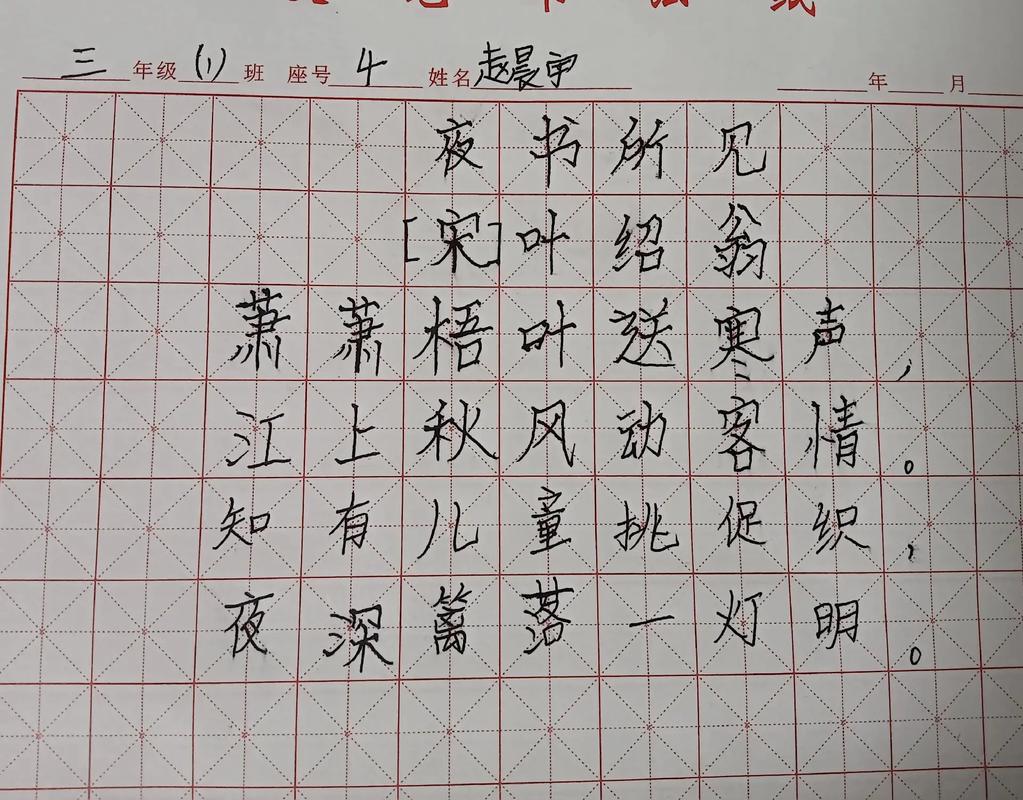 三年级(1)班 座号4 姓名赵晨宇 年 月
夜书所见
[宋]叶绍翁
萧萧梧叶送寒声,
江上秋风动客情。
知有儿童挑促织,
夜深篱落一灯明。